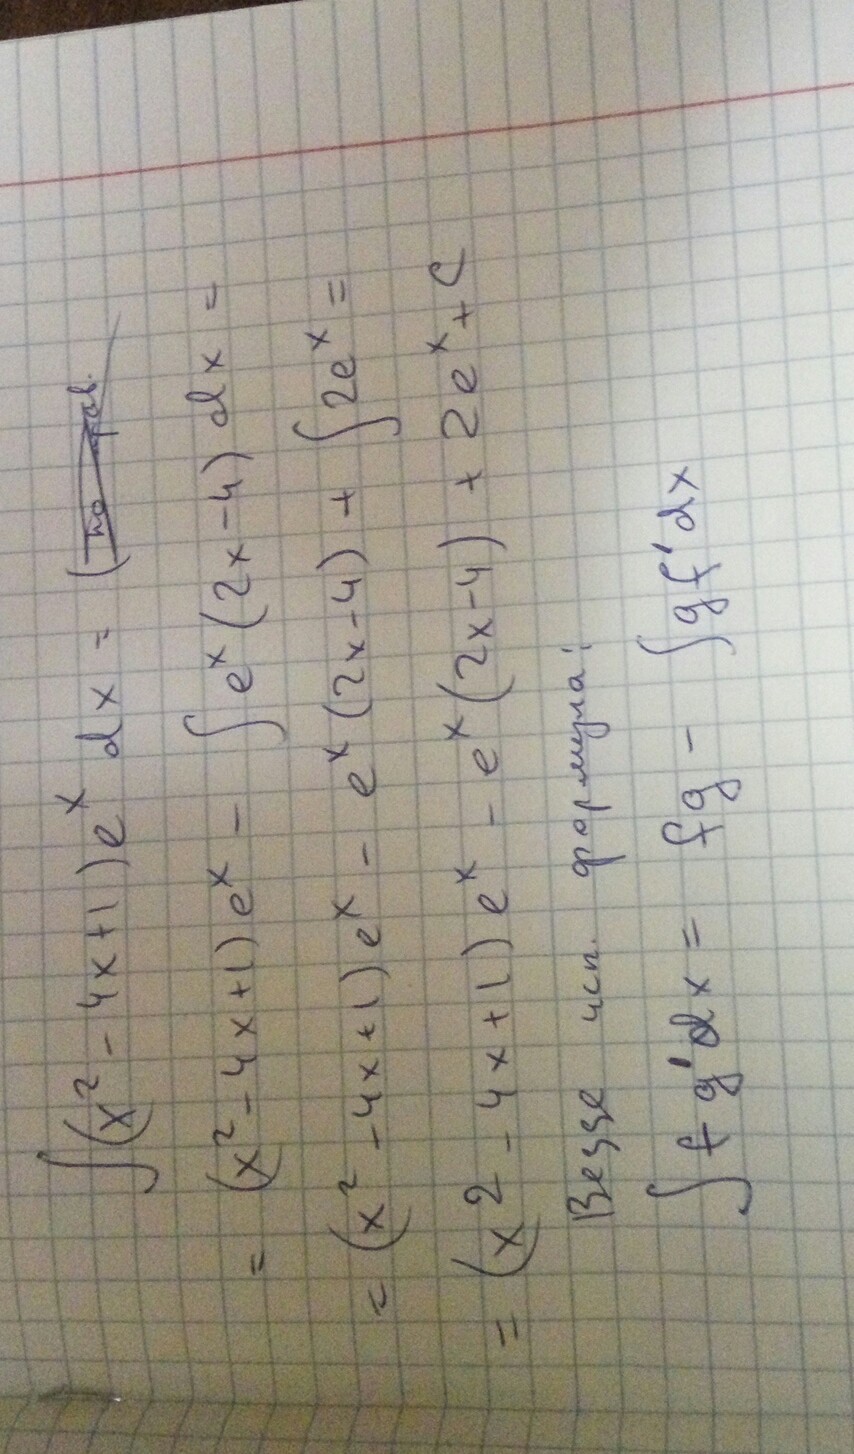 ∫(x² - 4x + 1)e^x dx =
= (x² - 4x + 1)e^x - ∫e^x(2x - 4) dx =
= (x² - 4x + 1)e^x - e^x(2x - 4) + ∫2e^x =
= (x² - 4x + 1)e^x - e^x(2x - 4) + 2e^x + C
Везде исп. формула:
∫fg'dx = fg - ∫gf'dx